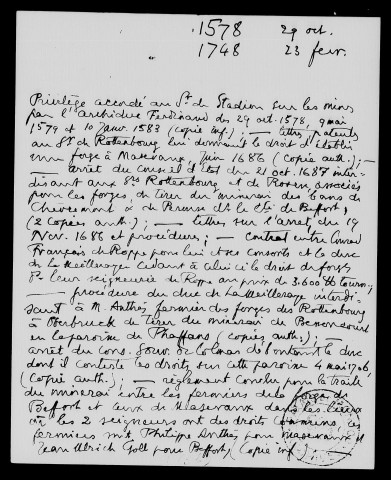 1578 29 oct.
1748 23 févr.
Privilège accordé au Sr de Stadion sur les mines
par l'archiduc Ferdinand des 29 oct. 1578, 9 mai
1579 et 10 janv. 1583 (copie inf.) ; — lettres patentes
au Sr de Rottenbourg lui donnant le droit d'établir
une forge à Masevaux, juin 1686 (copie auth.) ; —
arrêt du Conseil d'état du 21 oct. 1687 inter-
disant aux Srs Rottenbourg et de Rosen, associés
pour les forges, de tirer du minerai des bans de
Chevremont et de Perouse de le Cté de Beffort,
(2 copies auth.) ; — lettres sur l'arrêt du 19
Nov. 1688 et procédure ; — contrat entre Conrad
François de Roppe pour lui et ses consorts et le duc
de la Meilleraye cédant à celui-ci le droit de forges
ds leur seigneurie de Roppe au prix de 3.600 lb tourn. ;
— procédure du duc de la Meilleraye interdi-
sant à M. Anthès fermier des forges des Rottenbourg
à Oberbruck de tirer du minerai de Bemoncourt
en la paroisse de Phaffans (copies auth.) ;
arrêt du Cons. souv. de Colmar déboutant le duc
dont il conteste les droits sur cette paroisse 4 mai 1706,
(copie auth.) ; — règlement conclu pour la traite
du minerai entre les fermiers de la forge de
Beffort et ceux de Masevaux dans les lieux
où les 2 seigneurs ont des droits communs, ces
fermiers sont Philippe Anthès pour Masevaux et
Jean Ulrich Goll pour Beffort, (copie inf.) —